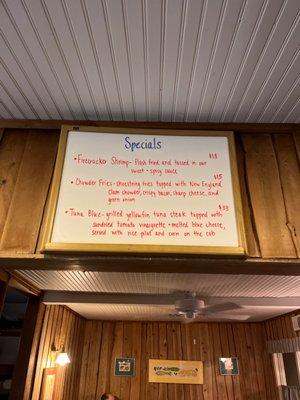 Specials
• Firecracker Shrimp- flash fried and tossed in our $18
sweet + spicy sauce
• Chowder Fries- shoestring fries topped with New England $15
Clam chowder, crispy bacon, sharp cheese, and
green onion
• Tuna Blue- grilled yellowfin tuna steak topped with $33
sundried tomato vinaigrette + melted blue cheese,
served with rice pilaf and corn on the cob